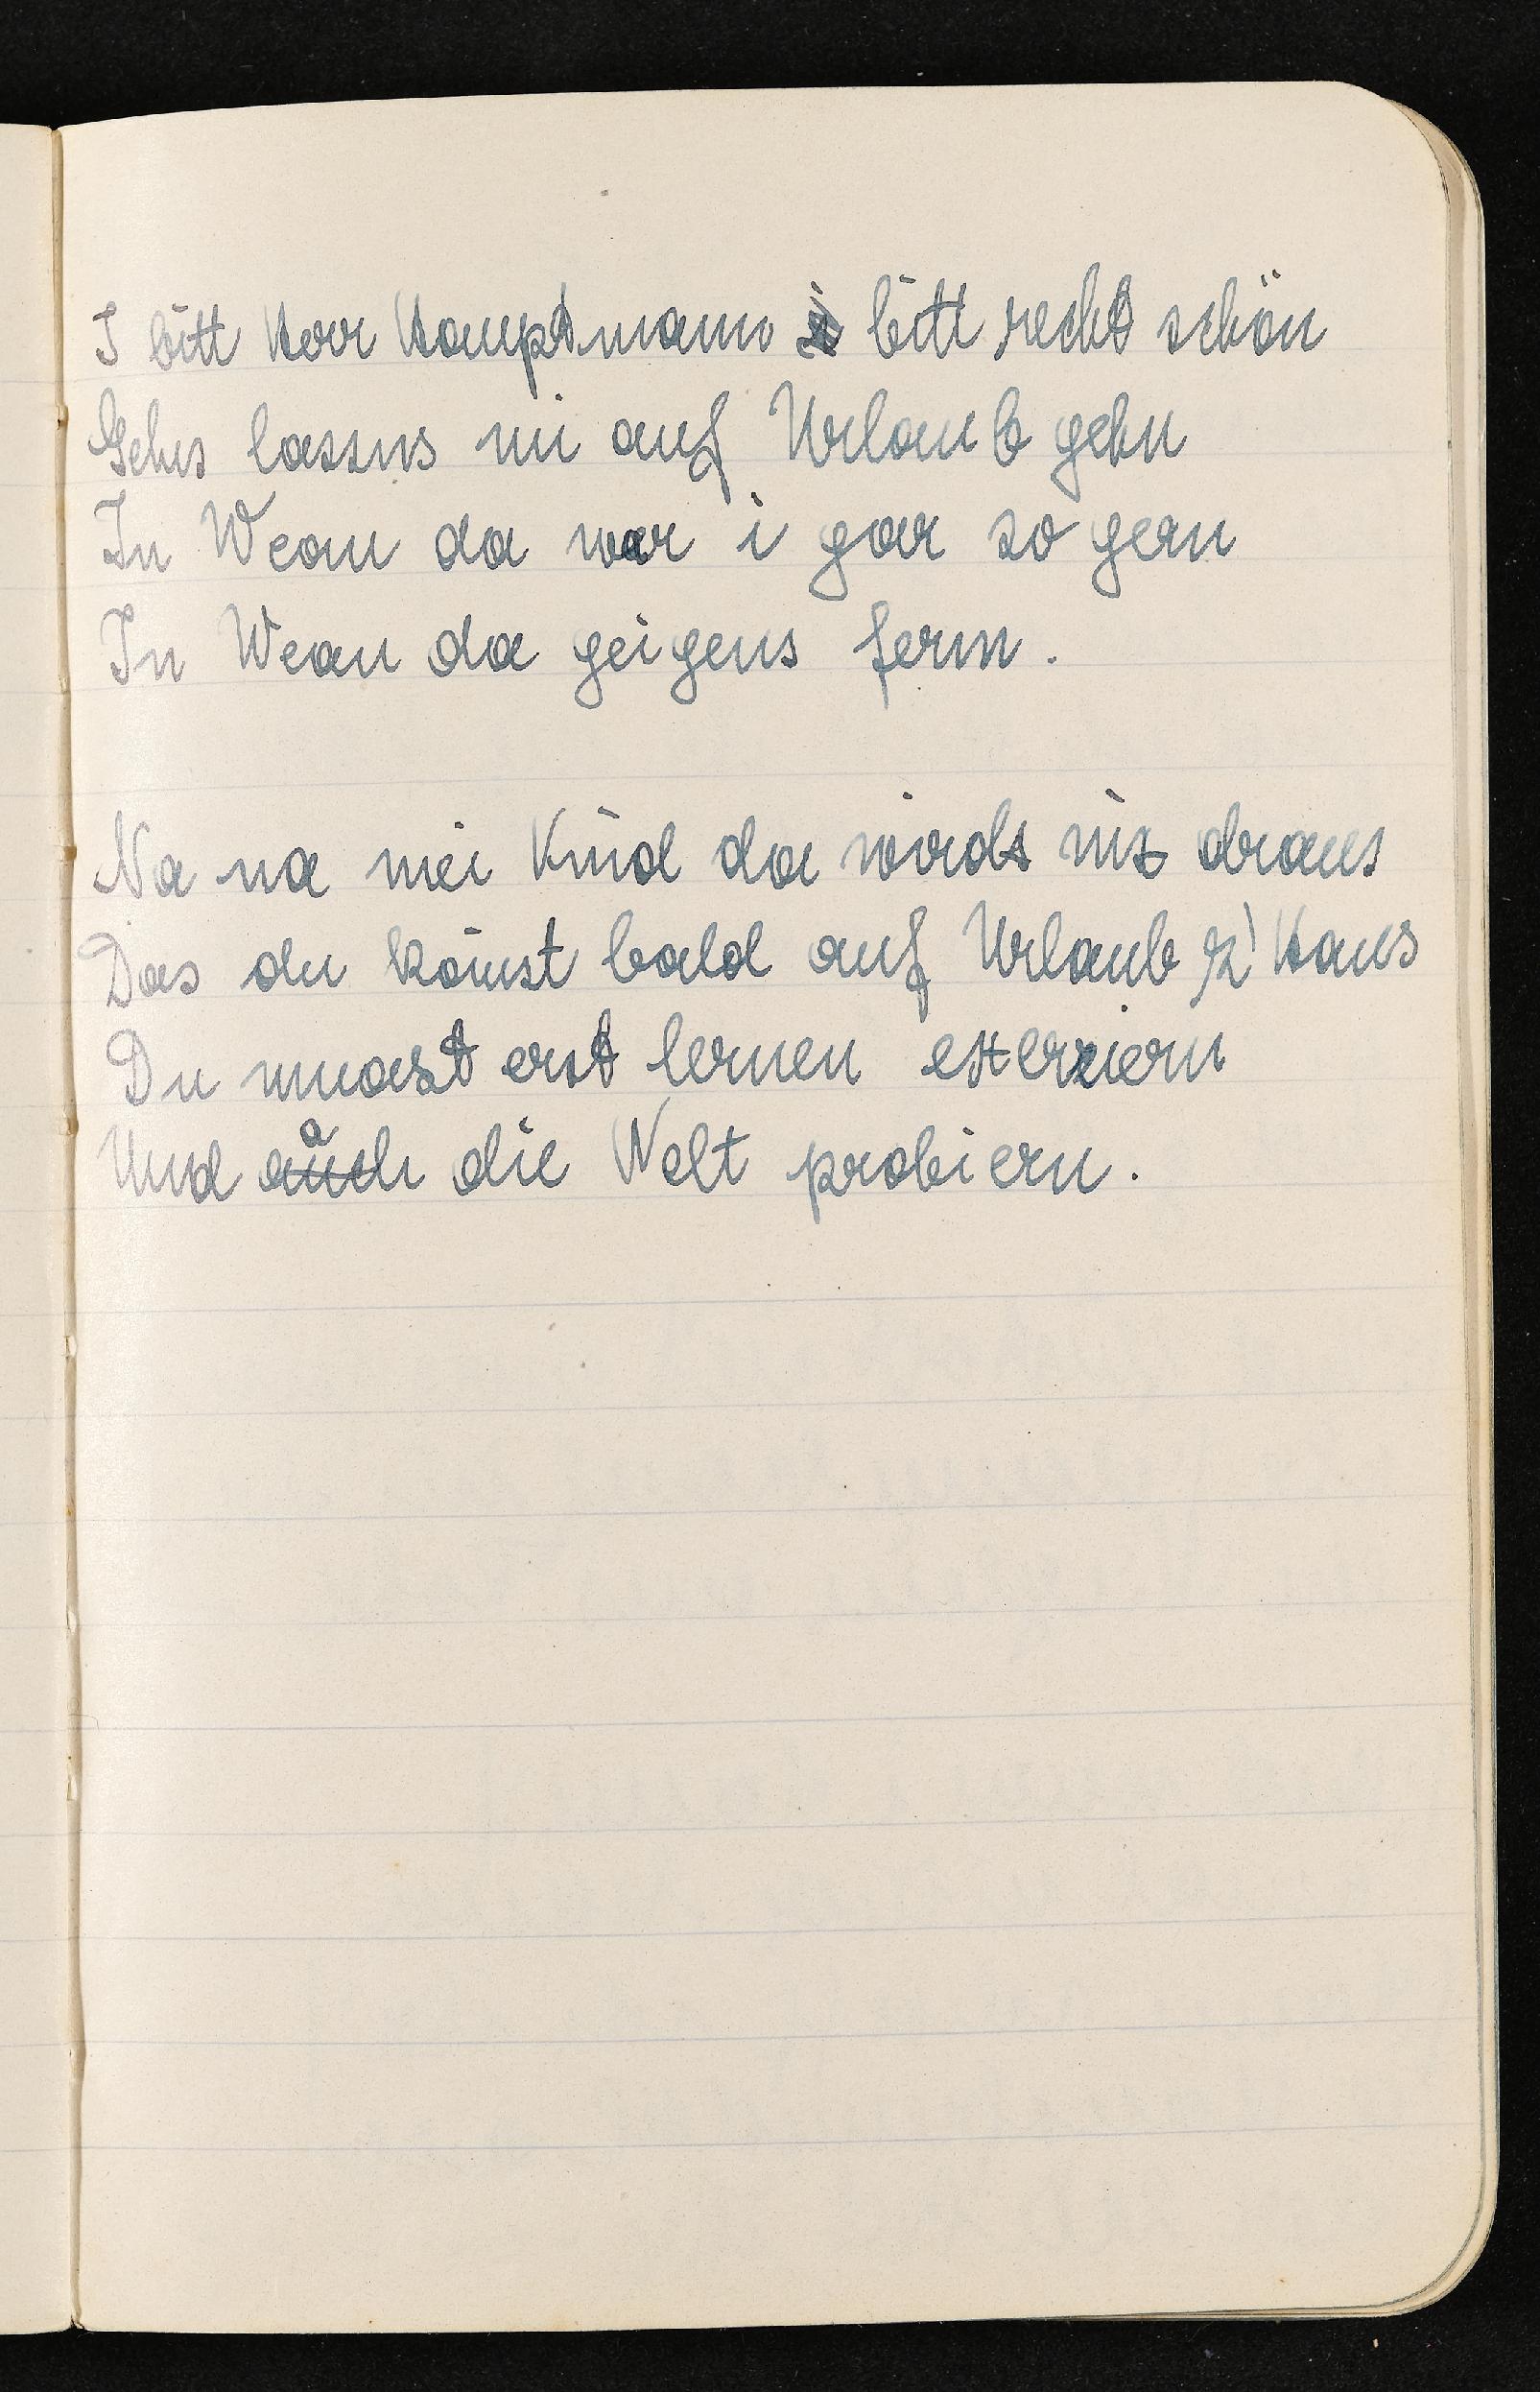 I bitt Herr Hauptmann i bitt recht schön
Gehns lassns mi auf Urlaub gehn
In Wean da war i gar so gern
In Wean da geigens fern.
Na na mei Kind da wirds nix draus
Das du kömst bald auf Urlaub z' Haus
Du muast erst lernen exerziern
Und a die Welt probiern.